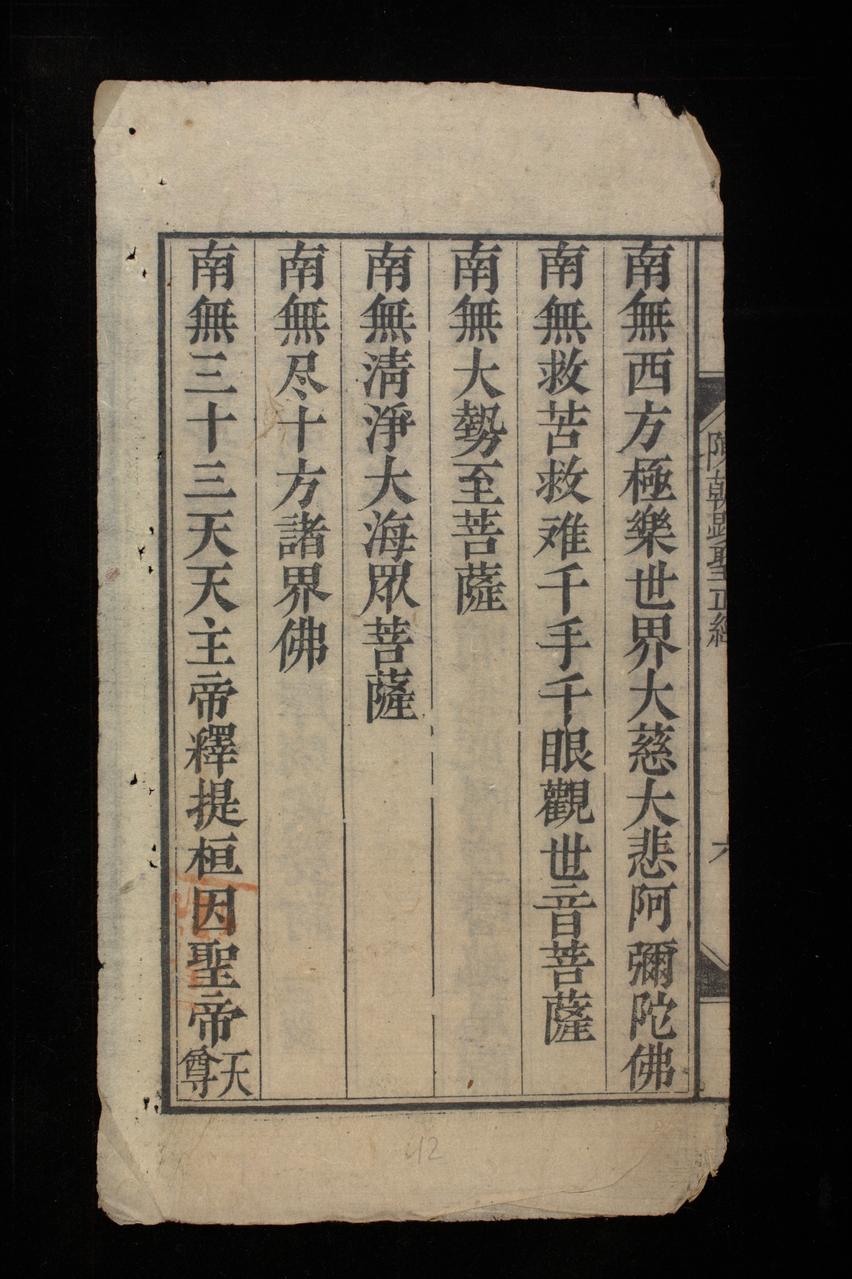 南無西方極樂世界大慈大悲阿彌陀佛
南無救苦救难千手千眼觀世音菩薩
南無大勢至菩薩
南無清淨大海眾菩薩
南無尽十方諸界佛
南無三十三天天主帝釋提桓因聖帝天尊
聖正經
六
42